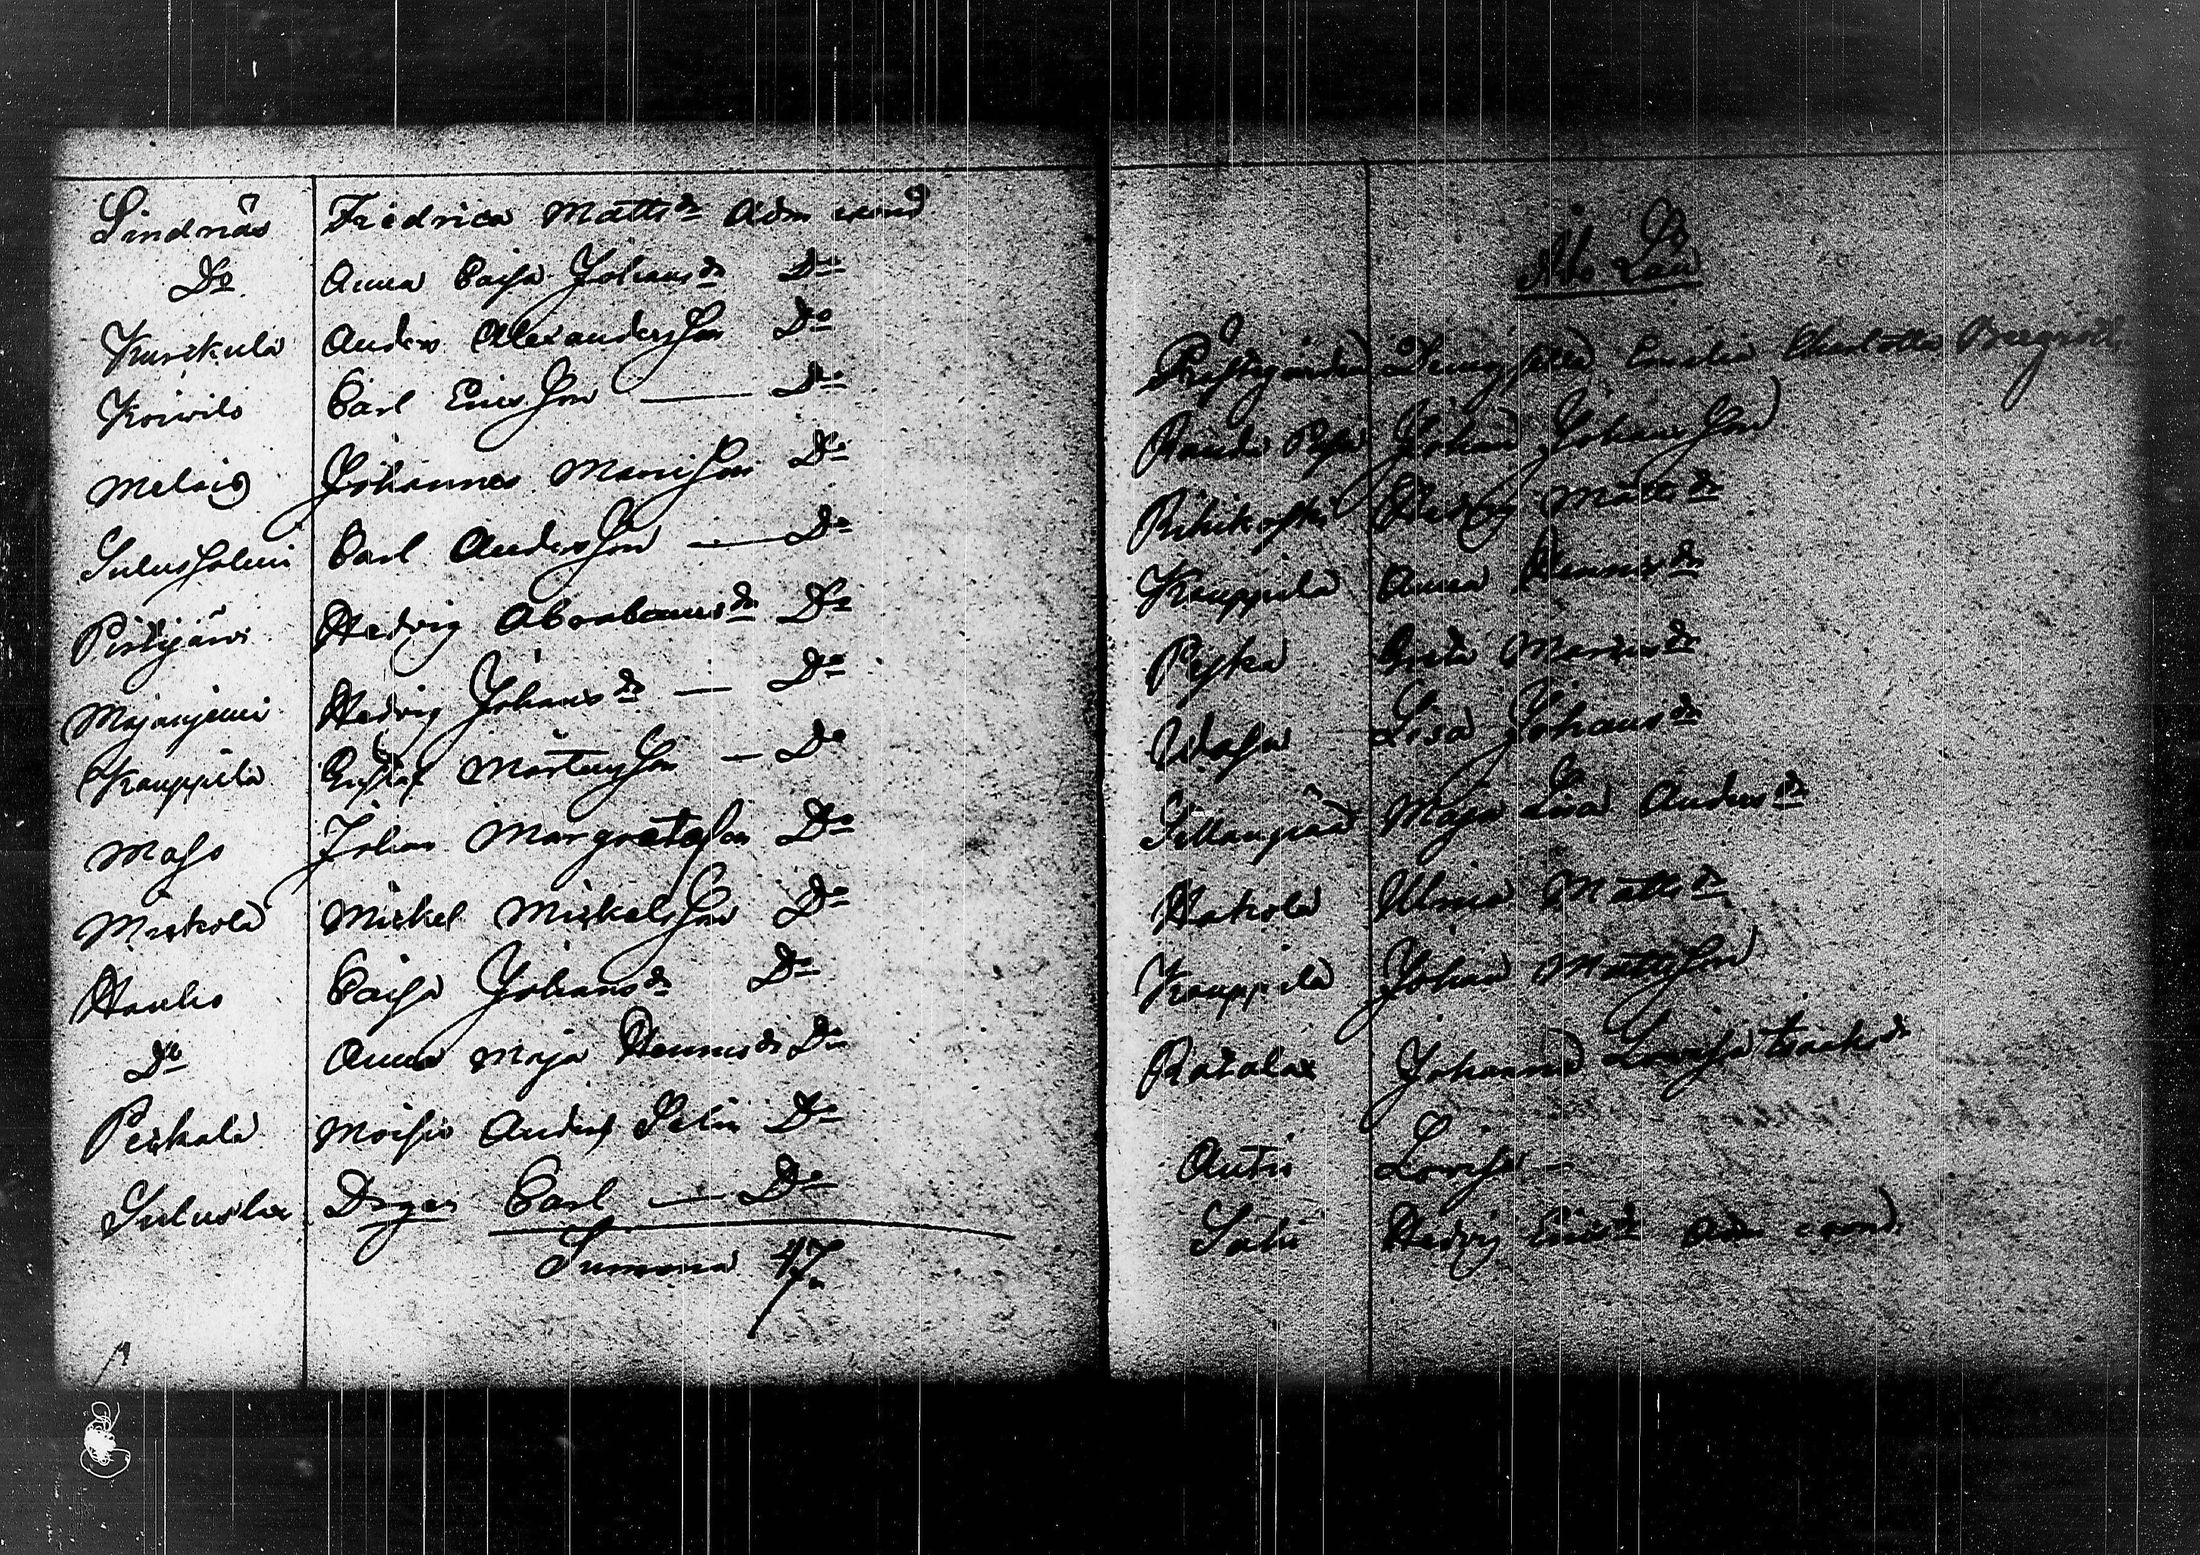 Lindnäs Fredrica Matts dr Adm cond
Do Anna Caisa Johans dr Do
Kurikula Anders Alexandersson Do
Koivilo Carl Ericsson — Do
Melais Johannes Marison Do
Sulusholmi Carl Andersson — Do
Pirtijärvi Hedvig Abrahams dr Do
Majaniemi Hedvig Johans dr — Do
Kauppila Gustaf Mårtensson — Do
Maso Johan Margretason Do
Mickola Mickel Mickelsson Do
Hanko Caisa Johans dr Do
Do Anna Maja Henrics dr Do
Peskala Moisio Anders Selin Do
Suluslax Carl — Do
Summa 47
Åbo Län
Prästgården Emilia Charlotta
Johan Johansson
Rihikoski Hedvig Matts dr
Kauppila Anna Henrics dr
Greta Marias dr
Wasa Lisa Johans dr
Maja Lisa Anders dr
Hakola Ulrica Matts dr
Kauppila Johan Mattsson
Ratalax Johanna Lovisa Isaks dr
Antis Lovisa —
Hedvig Erics dr Adm cond